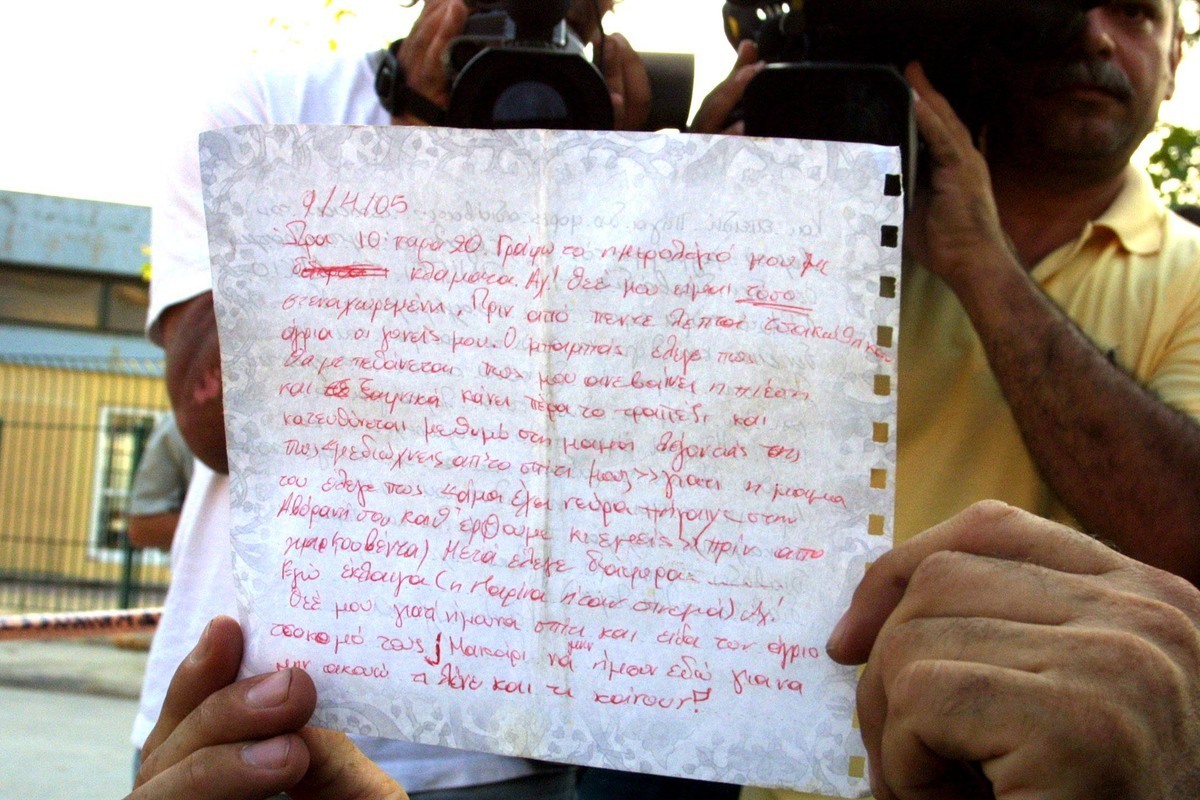 9/4/05
Ώρα 10 παρά 20. Γράφω το ημερολόγιό μου με
κλάματα. Αχ! Θεέ μου είμαι τόσο
στεναχωρεμένη. Πριν από πέντε λεπτά τσακώθηκαν
άγρια οι γονείς μου. Ο μπαμπάς έλεγε πως
θα με πεθάνεται πως μου ανεβαίνει η πίεση
και ξαφνικά κάνει πέρα το τραπέζι και
κατευθύνεται με θυμό στη μαμά λέγοντάς της
πως <<με διώχνεις απ'το σπίτι μας>> γιατί η μαμά
του έλεγε πως <<άμα έχει νεύρα πήγαινε στην
σου και θ' έρθουμε κι εμείς>> (πριν από
κουβέντα) Μετά έλεγε διάφορα
Εγώ έκλαιγα (η Μαρίνα ήταν σινεμά) Αχ!
Θεέ μου γιατί ήμουνα σπίτι και είδα τον άγριο
τσακωμό τους; Μακάρι να μην ήμουν εδώ για να
μην ακούω τι λένε και τι κάνουν!